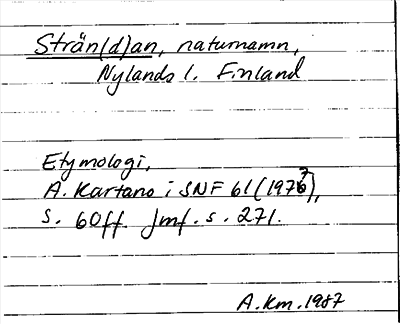 Strän(d)an, naturnamn,
Nylands l. Finland
Etymologi,
A. Kartano i SNF 61 (1976),
s. 60ff. Jmf. s. 271.
A.Km.1987